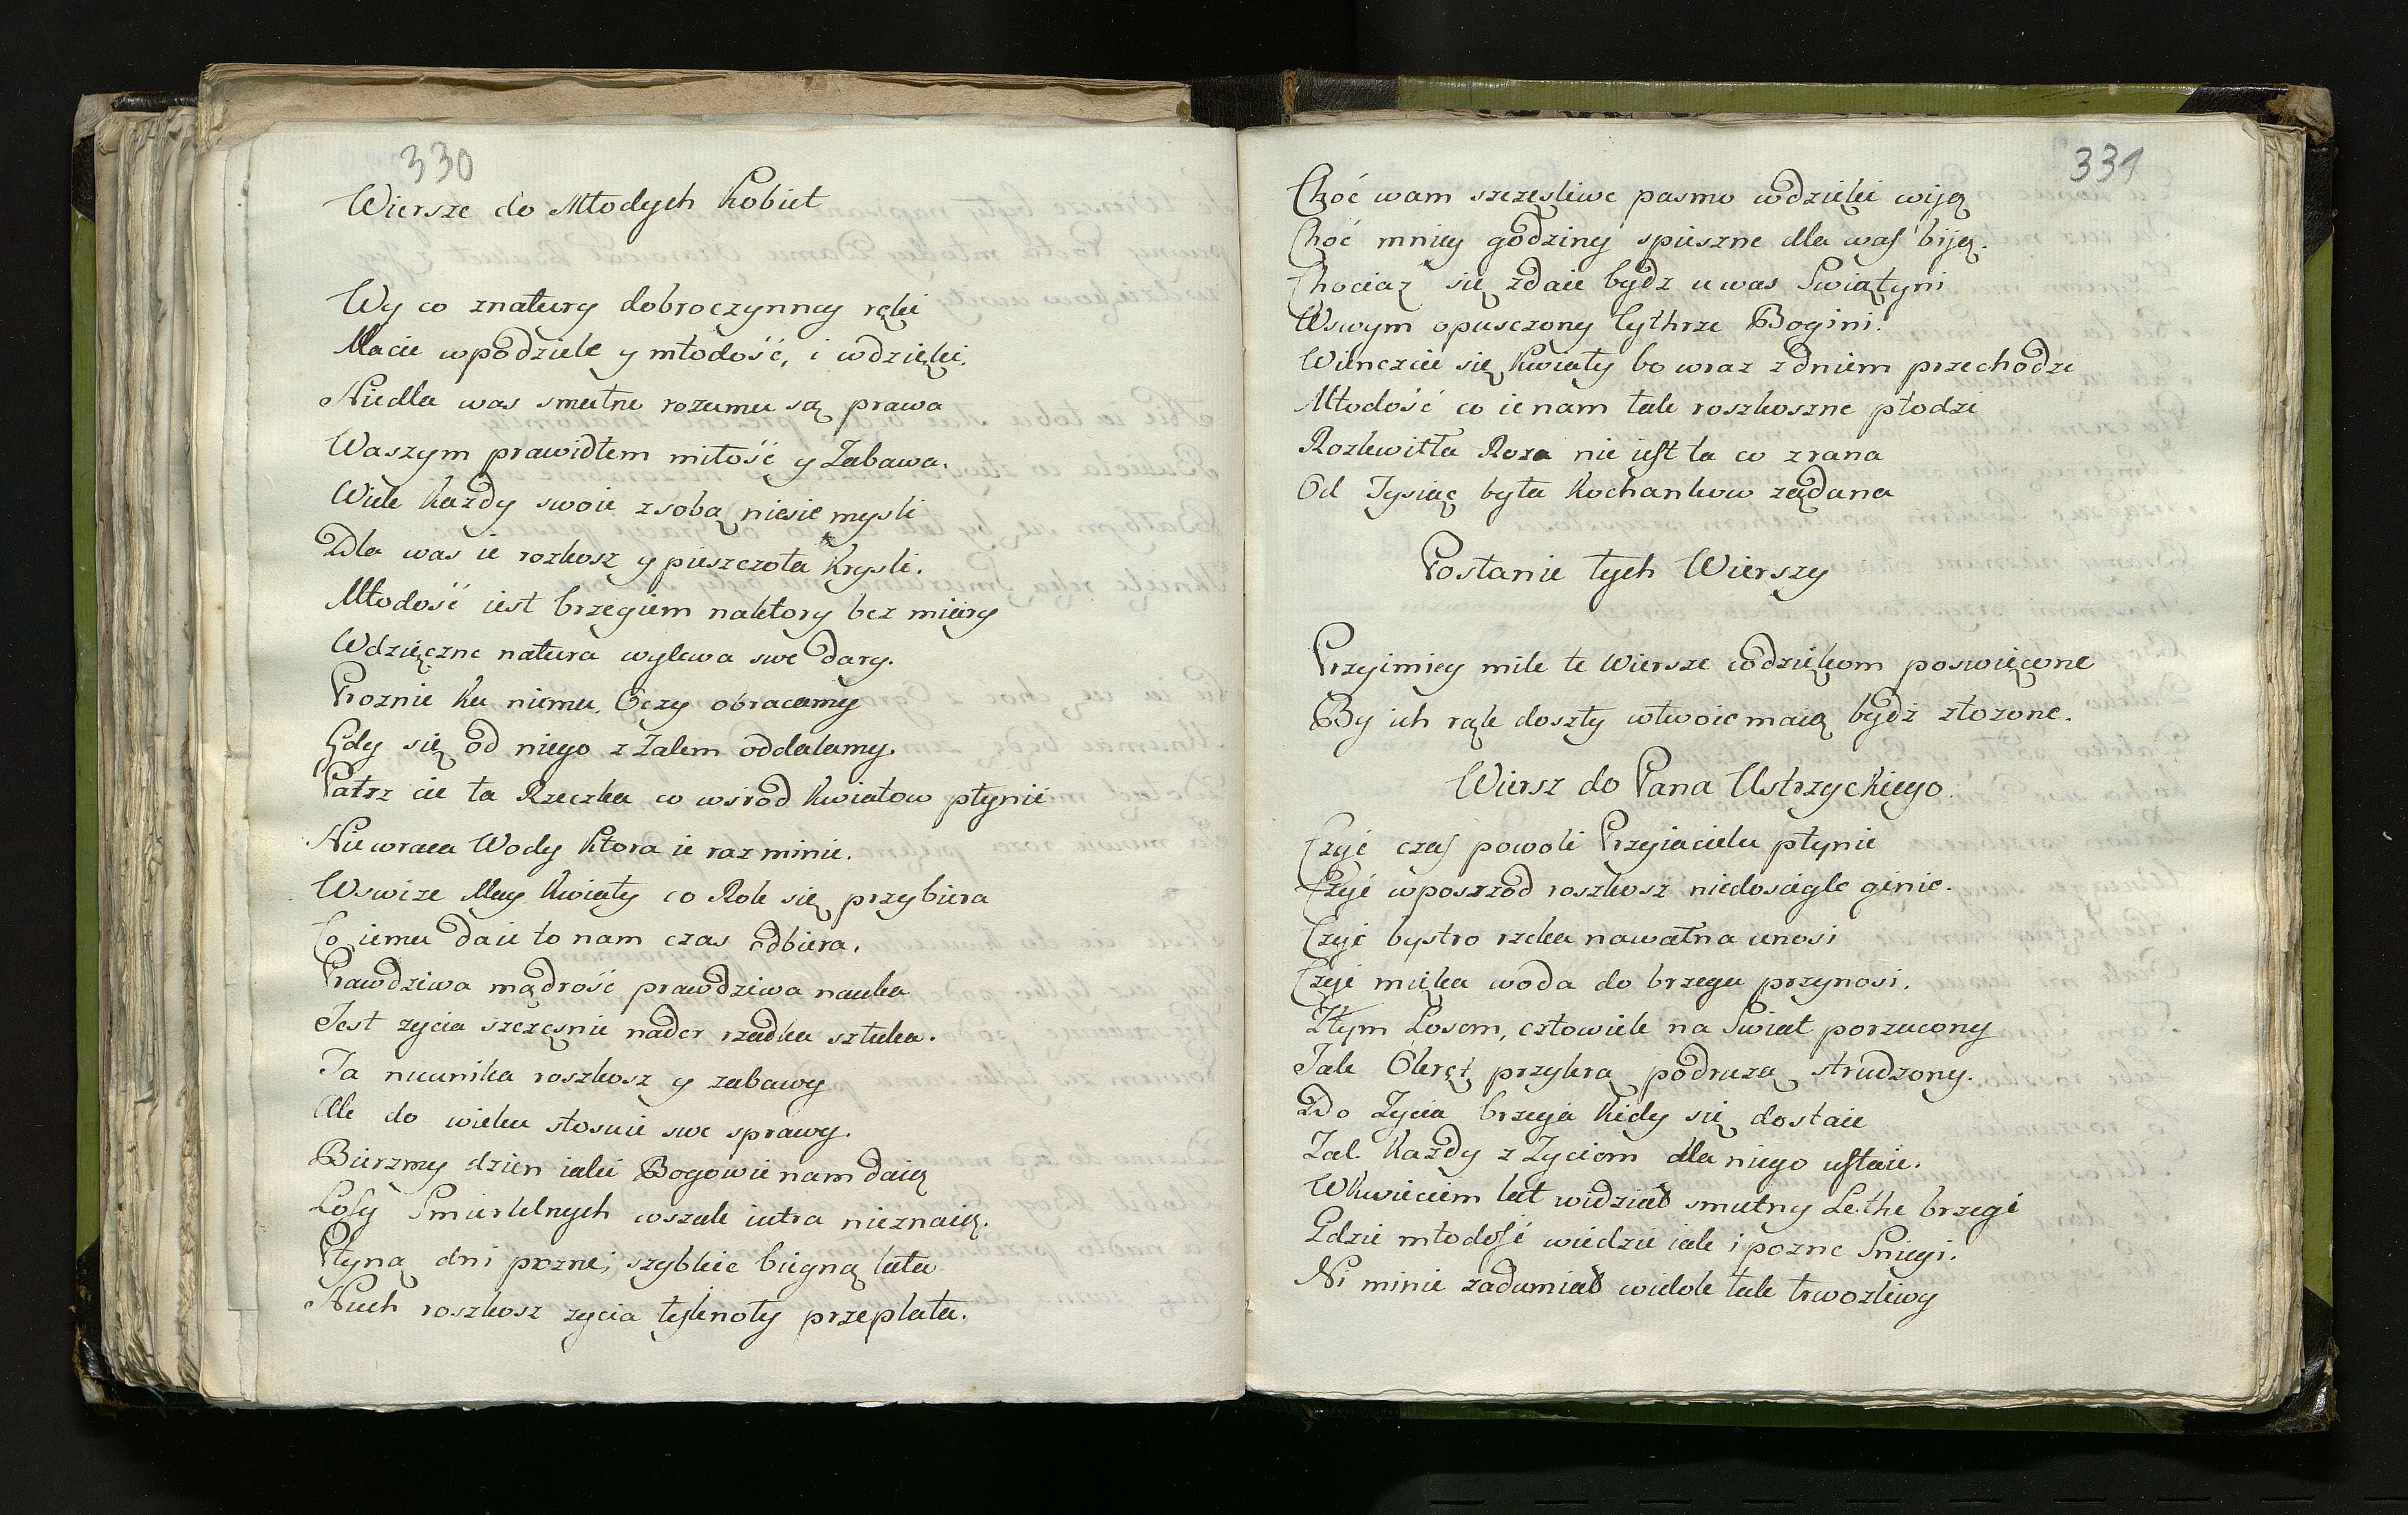 330
Wiersze do Młodych Kobiet
Wy co znatury dobroczynney ręki
Macie wpodziele y młodość, i wdzięki.
Niedla was smutne rozumu są prawa
Waszym prawidłem miłość y Zabawa.
Wiele każdy swoie zsobą niesie mysli
Dla was ie rozkosz y pieszczota Krysli.
Młodość iest brzegiem naktory bez miary
Wdzięczne natura wylewa swe dary.
Proznie ku niemu Oczy obracamy
Gdy się od niego z Zalem oddalamy.
Patrz cie ta Rzeczka co wśrod kwiatow płynie
Niewraca Wody Ktora ie raz minie.
Wswize May kwiaty co Rok się przybiera
Co iemu daie to nam czas odbiera.
Prawdziwa mądrość prawdziwa nauka
Jest zycia szczęsnie nader rzadka sztuka.
Ta nieunika roszkosz y zabawy
Ale do wieku stosuie swe sprawy.
Bierzmy dzien iaki Bogowie nam daią
Losy Smiertelnych wszak iutra nieznaią.
Płyną dni prozne; szybkie biegną lata
Niech roszkosz zycia tęsknoty przeplata.
331
Choć wam szczęsliwe pasmo wdzięki wiją
Choć mniey godziny spieszne dla was biją.
Chociaz się zdaie bydz u was Swiątyni
Wswym opusczony Cythrze Bogini.
Wienczcie się kwiaty bo wraz zdniem przechodzi
Młodość co ie nam tak roszkoszne płodzi
Rozkwitła Roza nie iest ta co zrana
Od Tysiąc była kochankow ządana
Posłanie tych Wierszy
Przyimiey mile te wiersze wdziękom poswięcone
By ich rąk doszły wtwoie maią bydź złozone.
Wiersz do Pana Ustrzyckiego.
Czyć czas powoli Przyiacielu płynie
Czyć wposrzod roszkosz niedoscigle ginie.
Czyć bystro rzeka nawałna unosi
Czyć miękka woda do brzegu przynosi.
Złym Losem, człowiek na Swiat porzucony
Jak Okręt przykrą podruzą strudzony.
Do Zycia brzega kiedy się dostaie
Zal każdy z Zyciem dla niego ustaie.
Wkwieciem lat widział smutny Lethe brzegi
Gdzie młodość wiedzie iak i pozne Sniegi.
Ni minie zadumiał widok tak trwozliwy